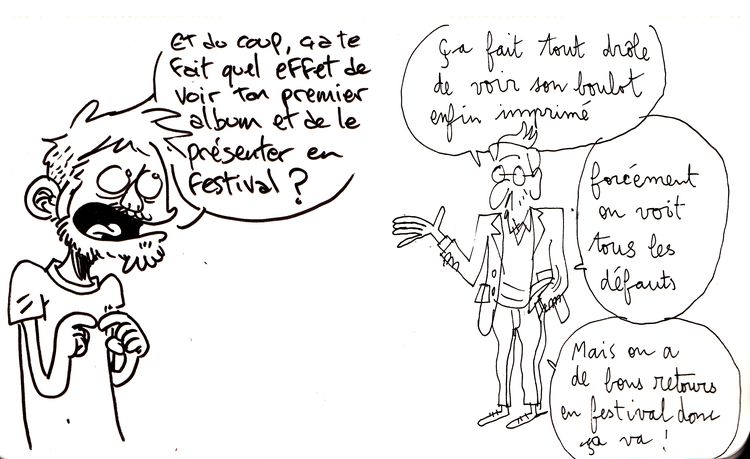 Et du coup, ça te
fait quel effet de
voir ton premier
album et de le
présenter en
festival ?
ça fait tout drôle
de voir son boulot
enfin imprimé
forcément
on voit
tous les
défauts
Mais on a
de bons retours
en festival donc
ça va !